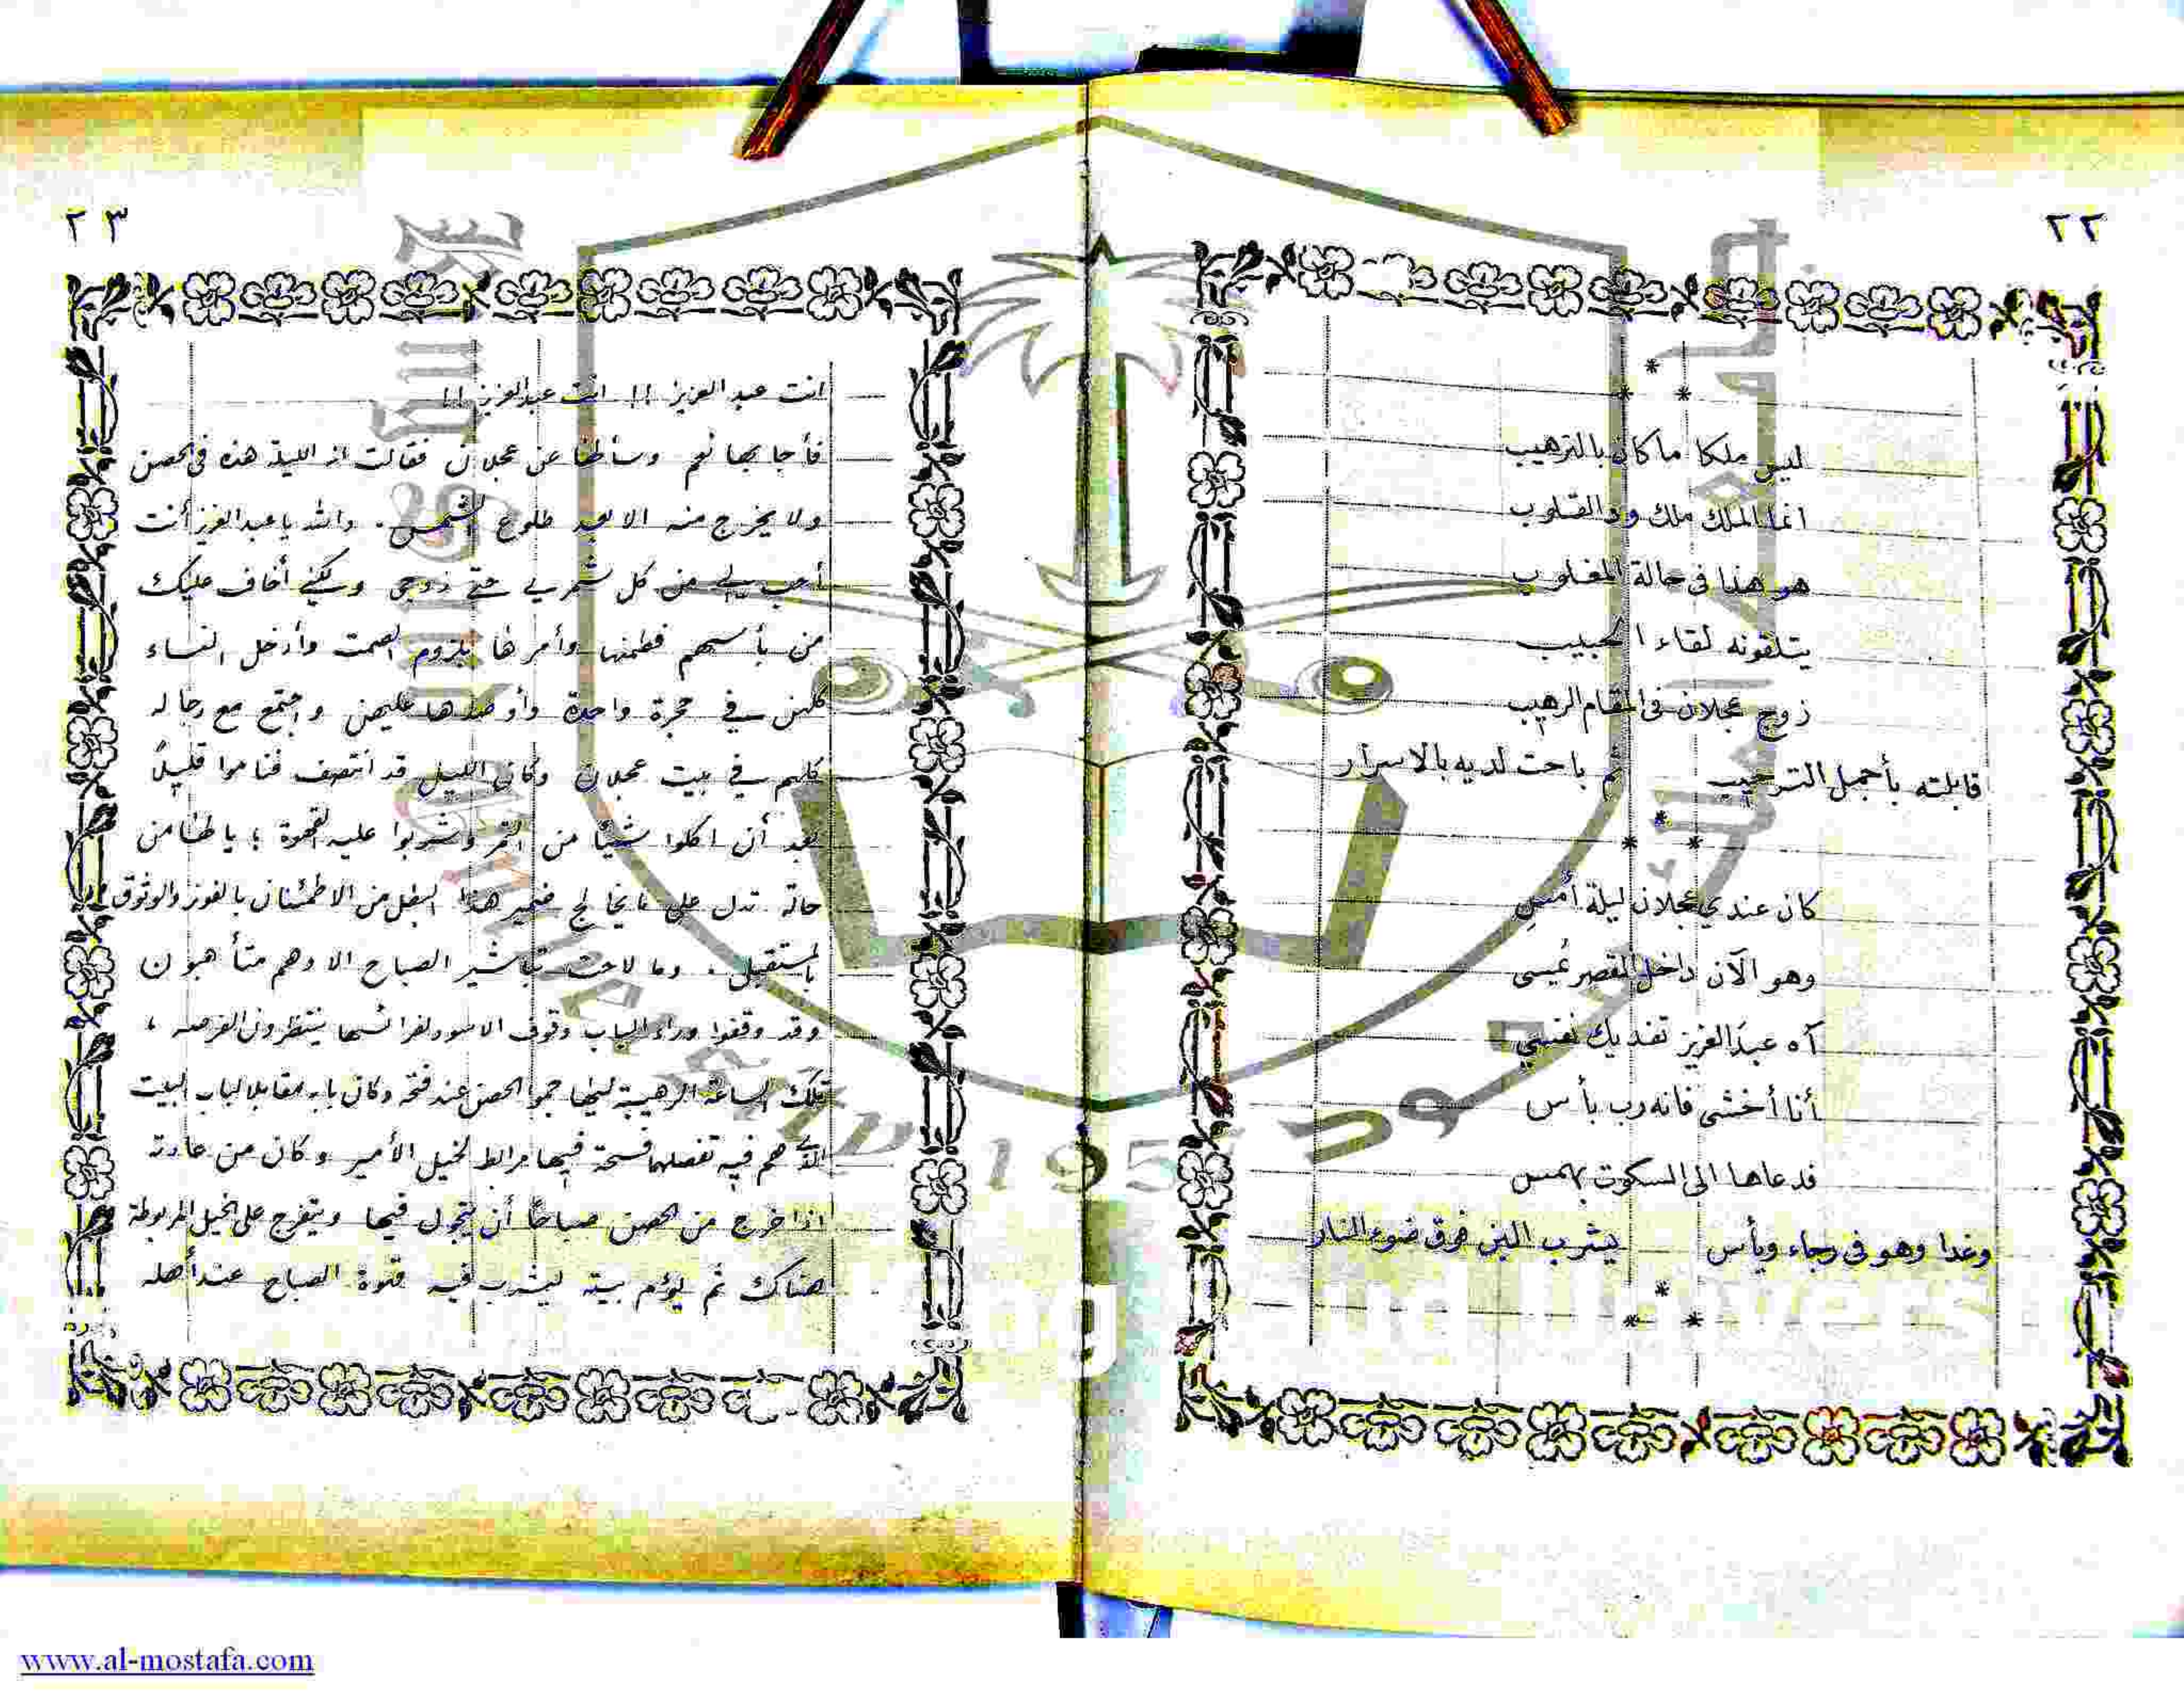 ٢٢
*
* *
ليس ملكا ما كان بالترهيب
انما الملك ملك ود القلوب
هو هذا فى حالة المغلوب
يتلقونه لقاء الحبيب
زوج عجلان فى المقام الرهيب
قابلته بأجمل الترحيب ثم باحت لديه بالاسرار
*
* *
كان عندي عجلان ليلة أمسِ
وهو الآن داخل القصر يمسى
آه عبدَ العزيز تفديك نفسي
أنا أخشى فانه رب بأس
فدعاها الى السكوت بهمس
وغدا وهو فى رجاء ويأس يشرب البن فوق ضوء النار
*
* *
٢٣
انت عبد العزيز !! انت عبد العزيز !!
فأجابها نعم وسألها عن عجلان فقالت انه الليلة هذه فى الحصن
ولا يخرج منه الا بعد طلوع الشمس . والله يا عبد العزيز أنت
أحب إلي من كل شمري حتى زوجي ولكني أخاف عليك
من بأسهم فطمنها وأمرها بلزوم الصمت وأدخل النساء
كلهن في حجرة واحدة وأوصدها عليهن واجتمع مع رجاله
كلهم في بيت عجلان وكان الليل قد انتصف فناموا قليلاً
بعد أن اكلوا شيئا من التمر وشربوا عليه القهوة ؛ يا لها من
حالة تدل على ما يخالج ضمير هذا البطل من الاطمئنان بالفوز والوثوق
بالمستقبل . وما لاحت تباشير الصباح الا وهم متأهبون
وقد وقفوا وراء الباب وقوف الاسود لفرائسها ينتظرون الفرصه ،
تلك الساعة الرهيبة ليهاجموا الحصن عند فتحه وكان بابه مقابلا لباب البيت
الذي هم فيه تفصلهما فسحة فيها مرابط لخيل الأمير وكان من عادته
اذا خرج من الحصن صباحاً أن يتجول فيها ويتفرج على الخيل المربوطة
هناك ثم يؤم بيته ليشرب فيه قهوة الصباح عند أهله
جامعة الملك سعود
1957
www.al-mostafa.com